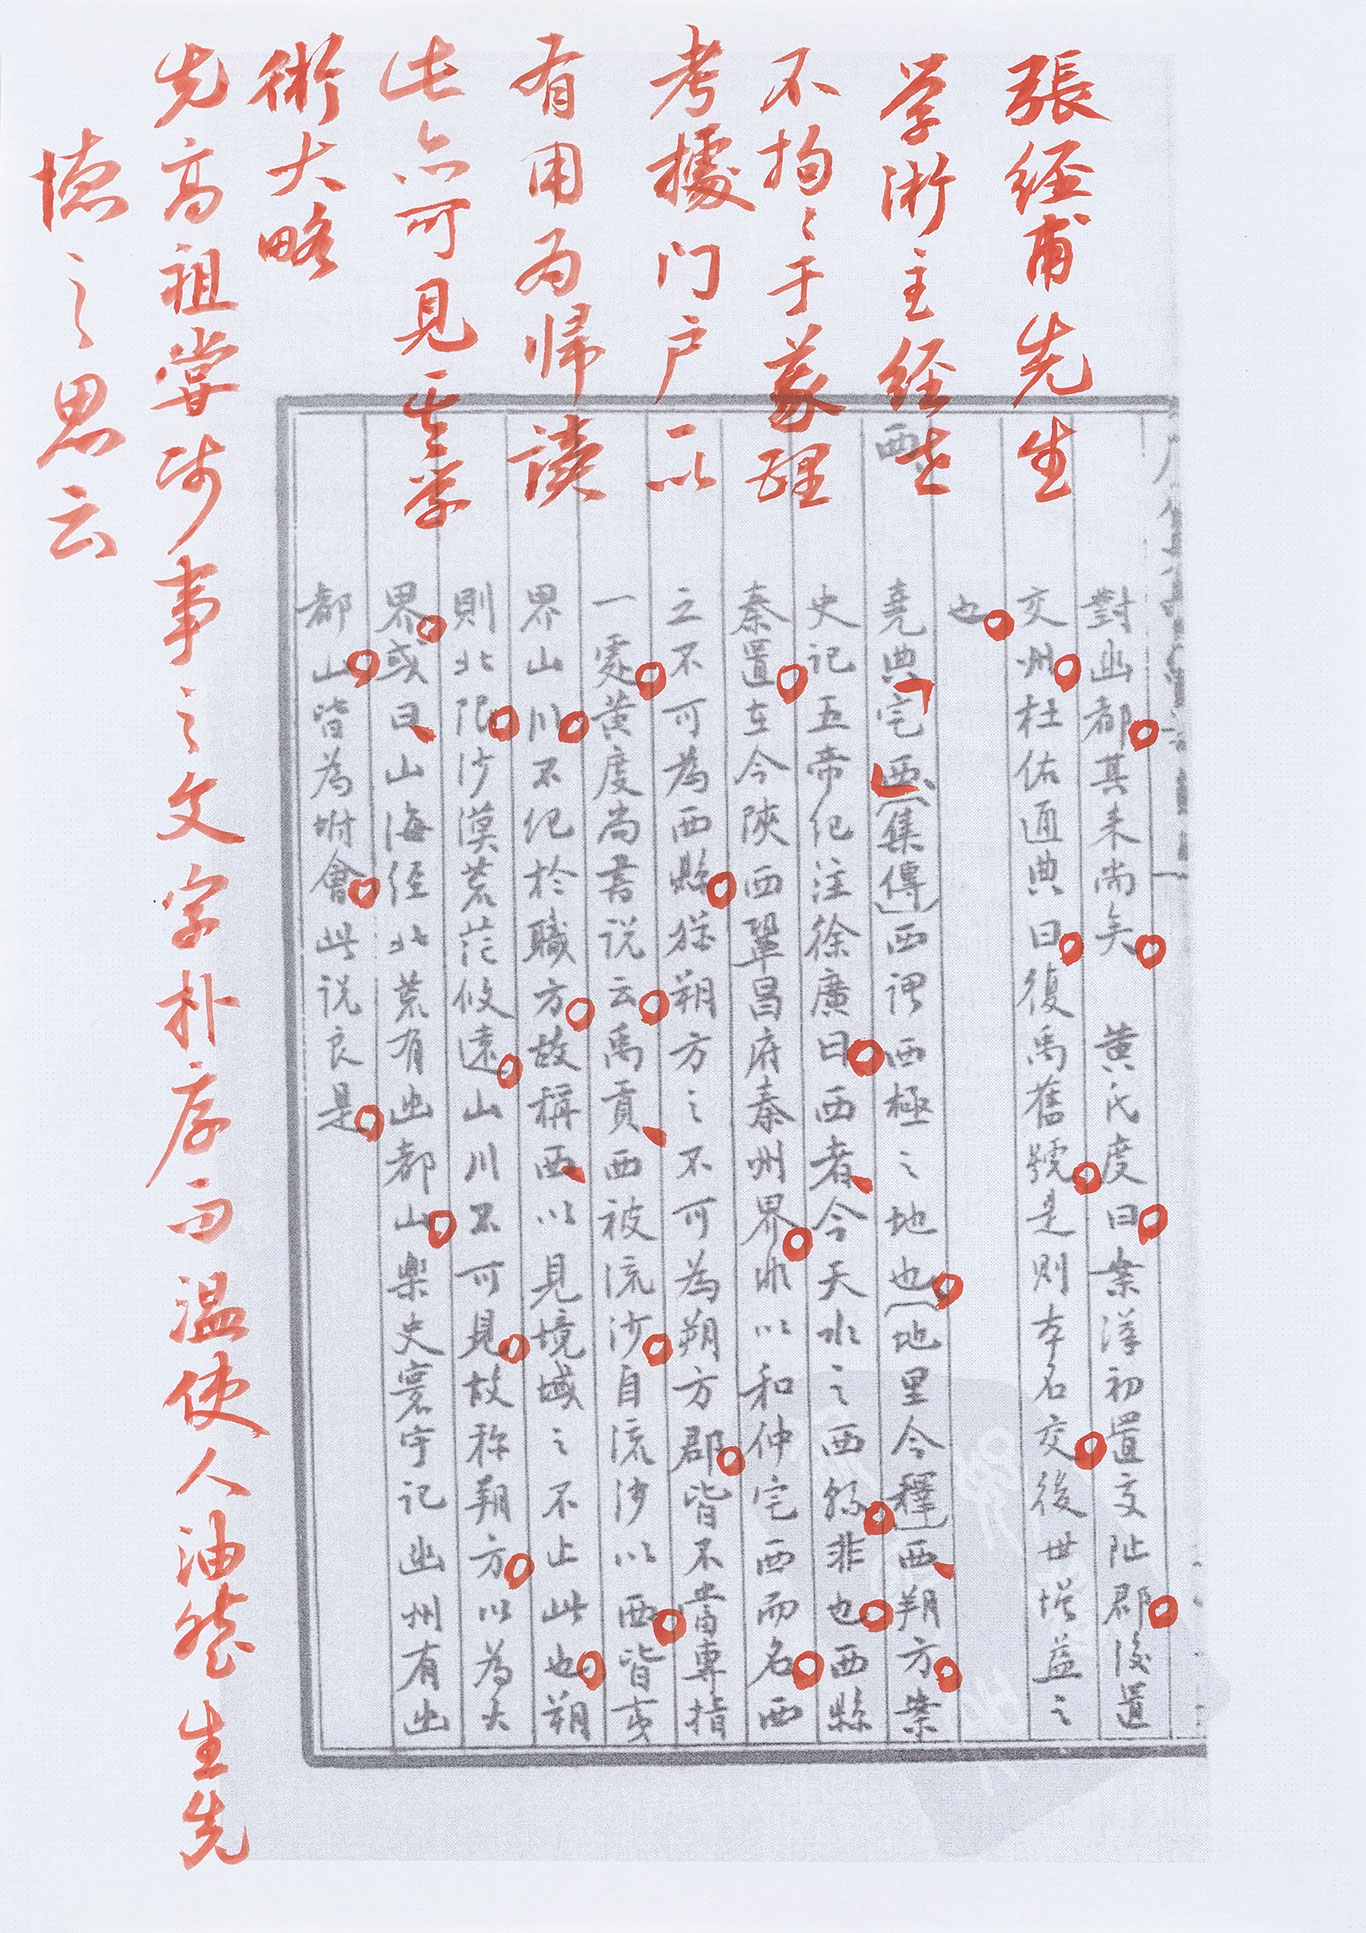 張经甫先生
学術主经世
不拘〻于義理
考據门户一以
有用为帰读
此亦可見其学
術大略
先高祖嘗涉事之文字朴厚而温使人油然生先
憶之思云
對幽都其来尚矣 黄氏度曰案漢初置交阯郡後置
交州杜佑通典曰復禹舊號是则本名交後世增益之
也
西
堯典宅西〔集傳〕西谓西極之地也〔地里今釋〕西朔方案
史记五帝纪注徐廣曰西者今天水之西縣非也西縣
秦置在今陝西鞏昌府秦州界非以和仲宅西而名西
之不可為西縣猶朔方之不可為朔方郡皆不當專指
一處黄度尚書说云禹貢西被流沙自流沙以西皆夷
界山川不纪於職方故稱西以見境域之不止此也朔
則北限沙漠荒茫攸遠山川不可見故称朔方以為大
界或曰山海经北荒有幽都山樂史寰宇记幽州有幽
都山皆為坿會此说良是